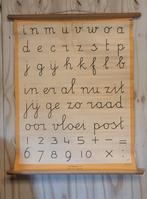 i n m u v w o a
d e c r z s t p
j g y h f k l b
in er al nu zit
jij ge zo raad
oor vloei post
1 2 3 4 5 + - =
6 7 8 9 10 × :